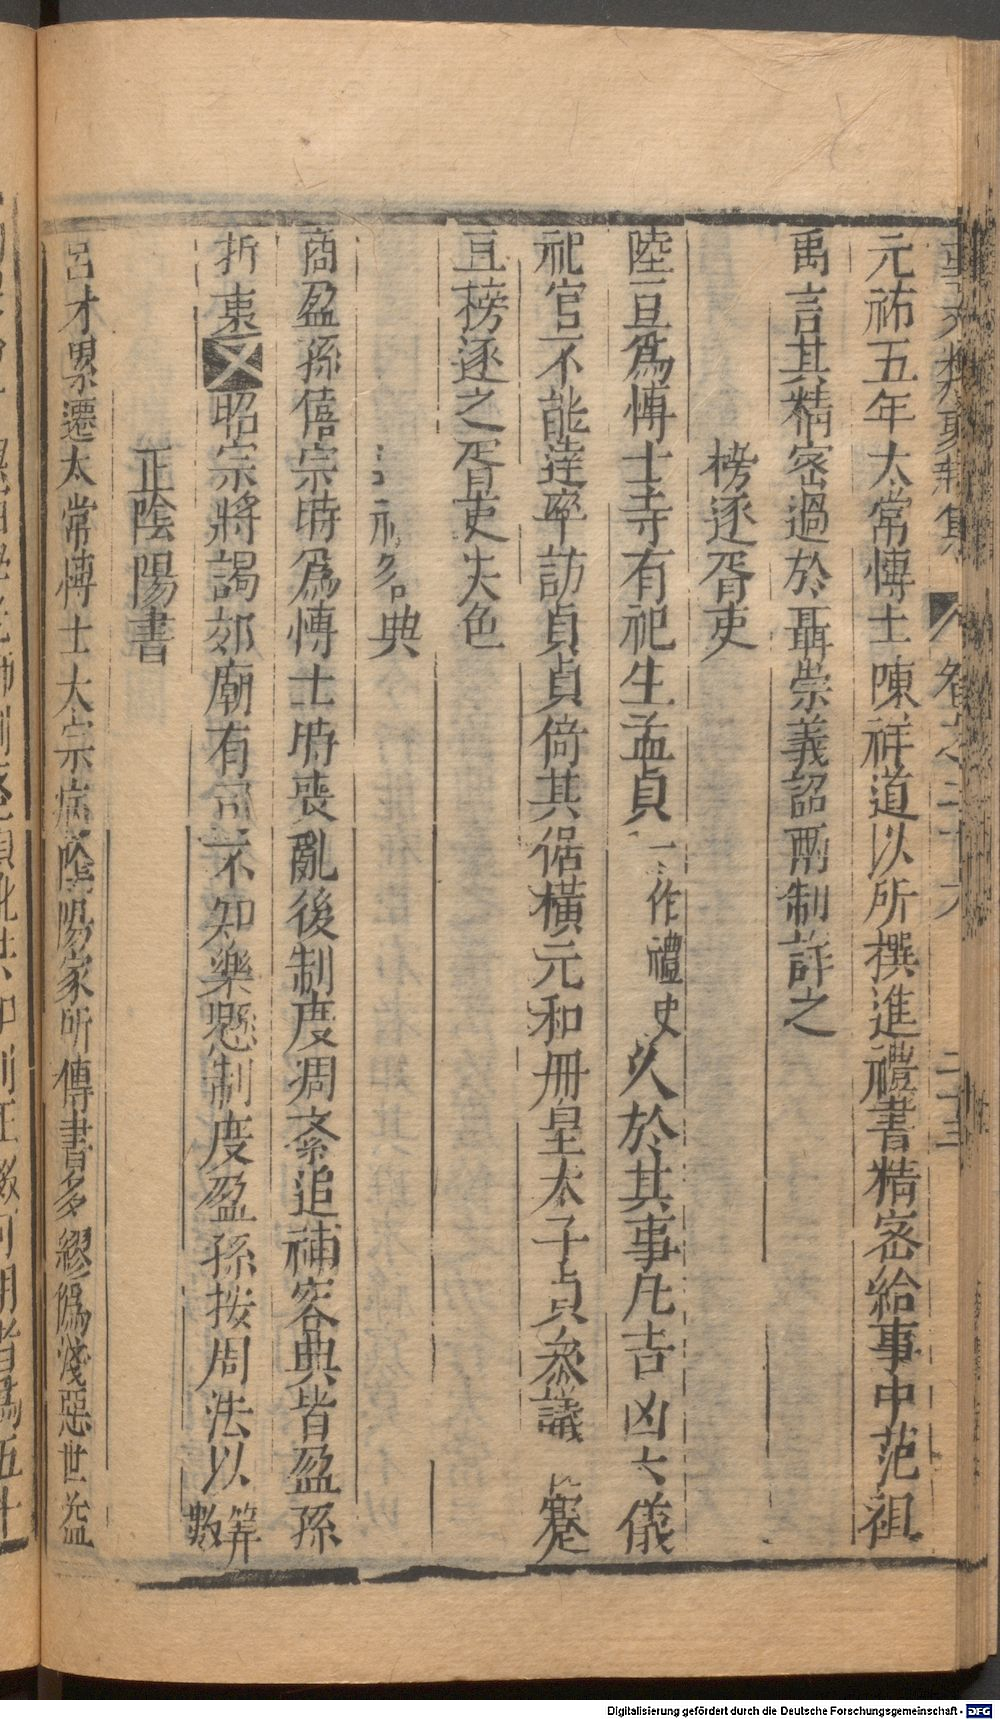 事文類聚新集 卷之二十六 二十三
元祐五年太常博士陳祥道以所撰進禮書精密給事中范祖
禹言其精密過於聶崇義詔兩制詳之
榜逐胥吏
陸亘爲博士寺有祀生孟貞 一作禮史 久於其事凡吉凶大儀
祀官不能達率訪貞貞倚其倨橫元和冊皇太子貞叅議 蹇
亘榜逐之胥吏失色
典
商盈孫僖宗時爲博士時喪亂後制度凋紊追補容典皆盈孫
折衷 昭宗將謁郊廟有司不知樂懸制度盈孫按周法以筭數
正陰陽書
呂才累遷太常博士太宗病陰陽家所傳書多繆僞淺惡世益
Digitalisierung gefördert durch die Deutsche Forschungsgemeinschaft - DFG